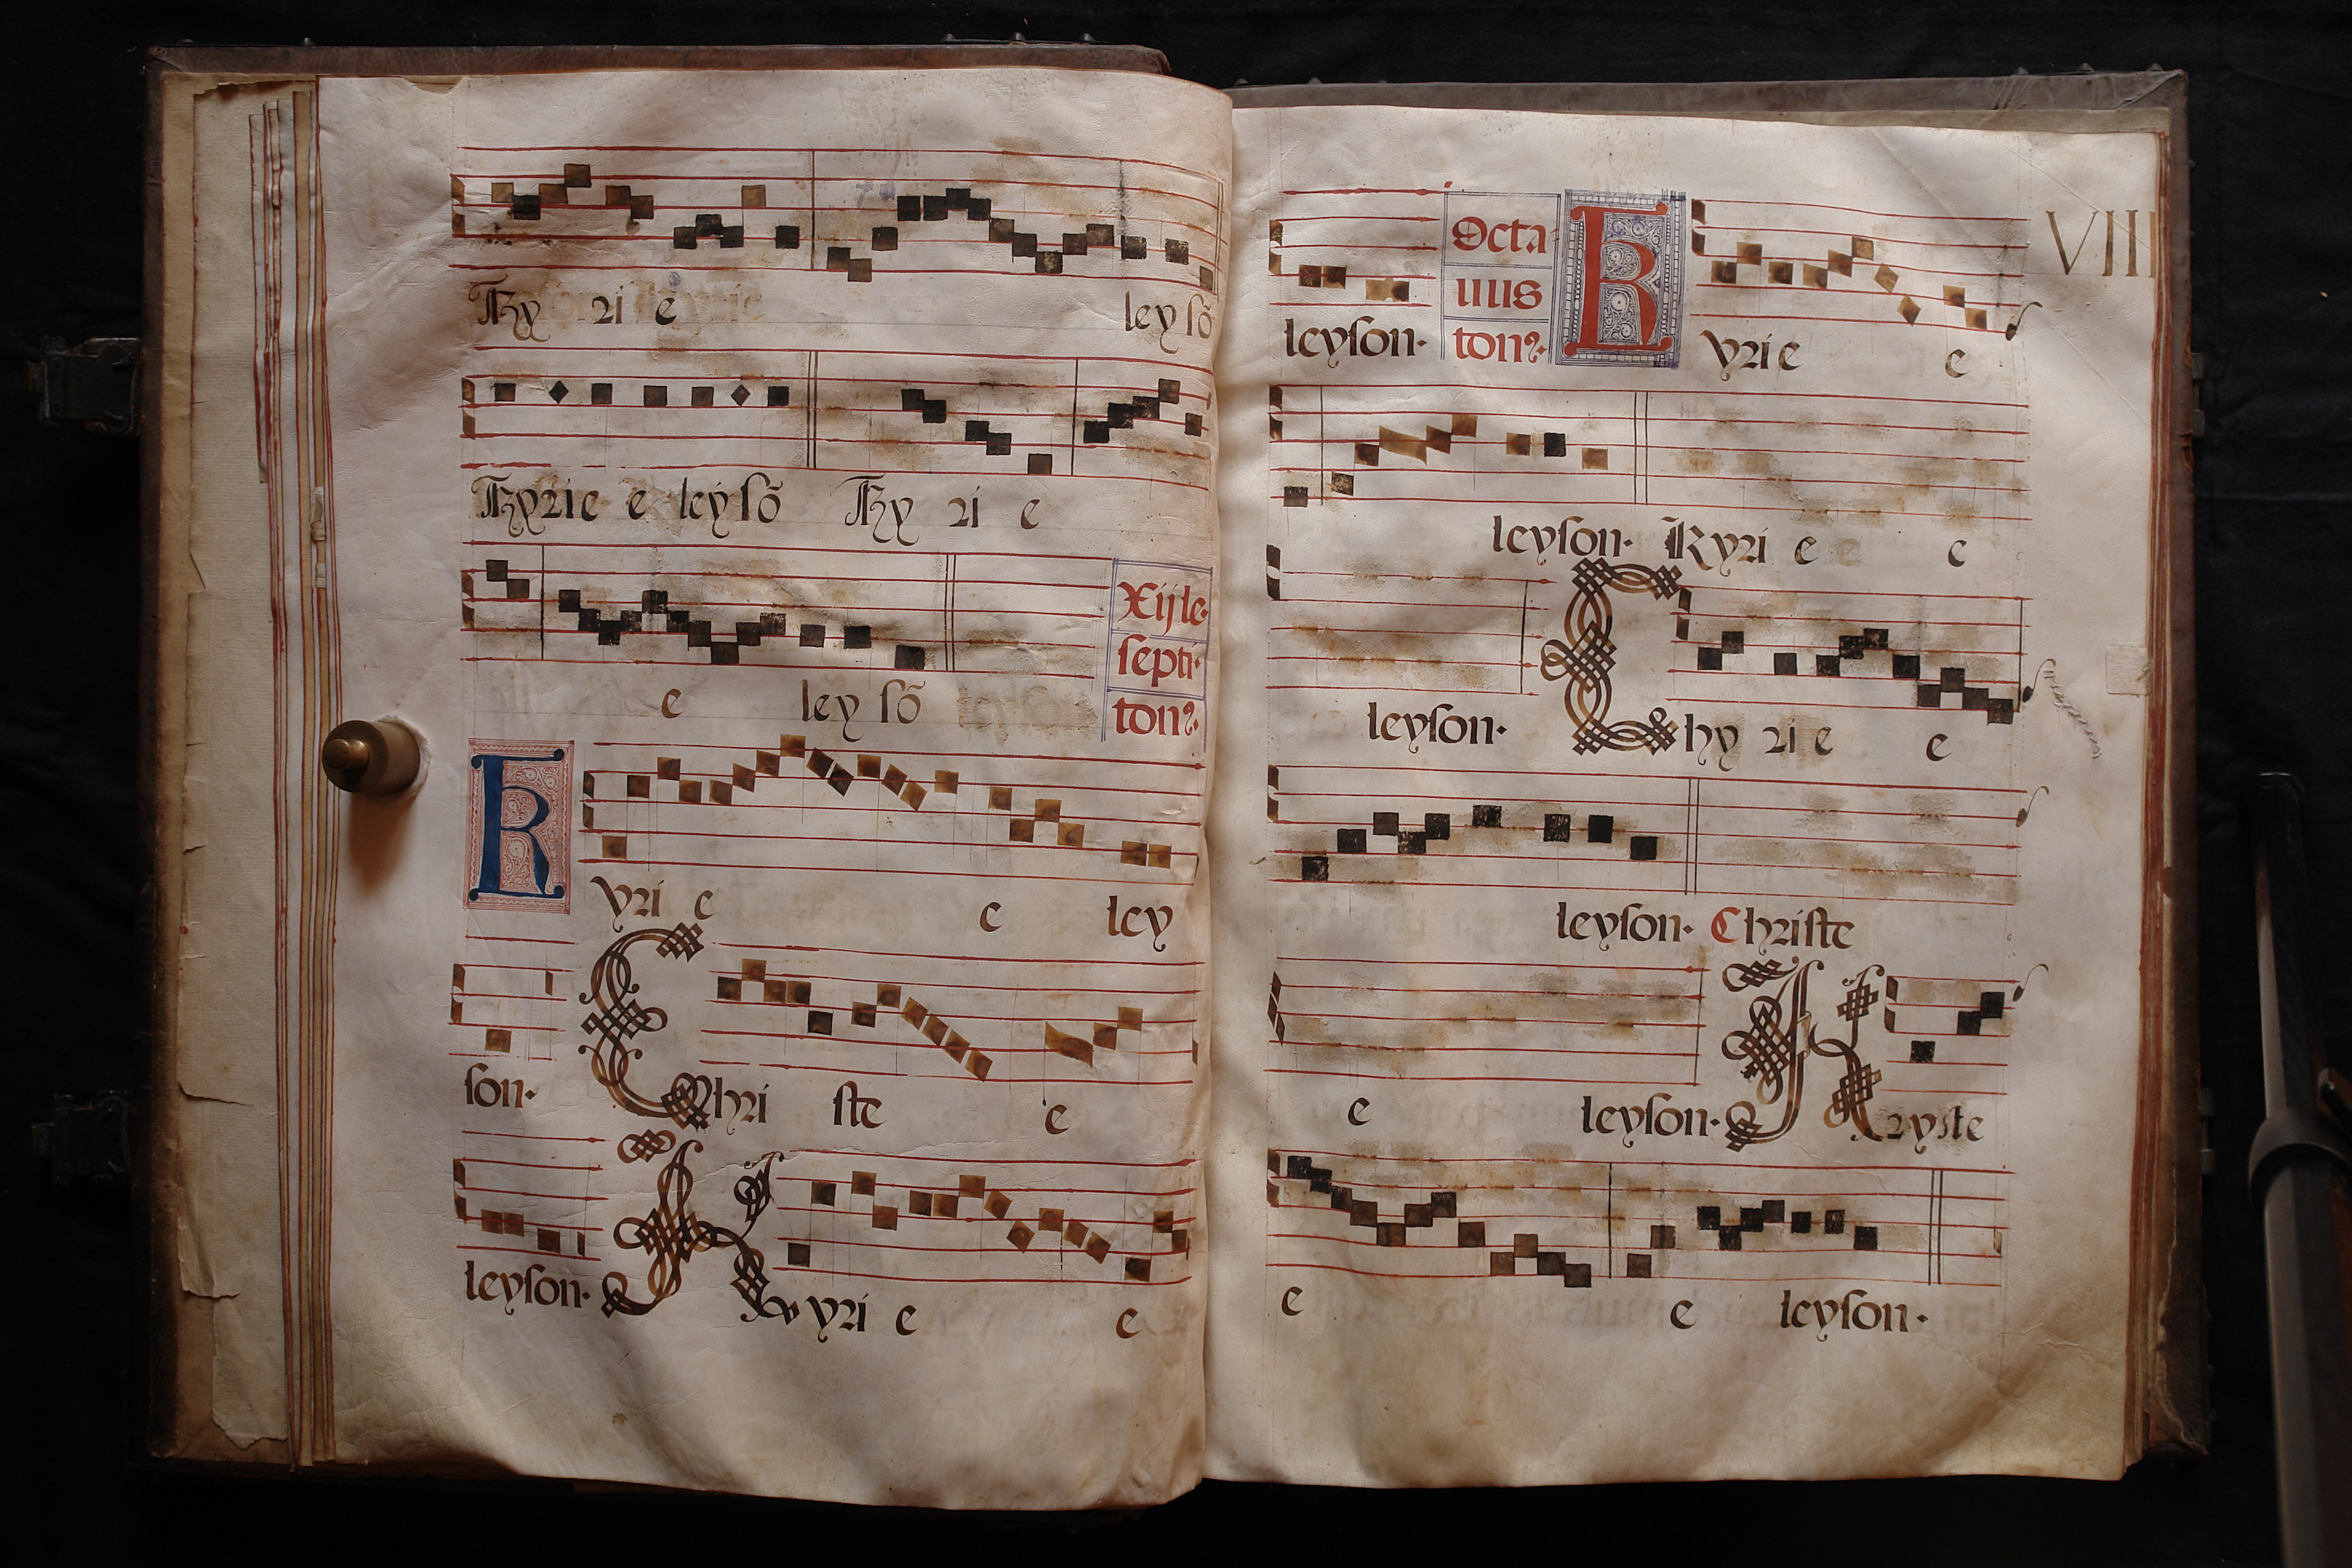 Ky ri e leysõ
Kyrie e leysõ Ky ri e
e ley sõ
Xij le·
septi·
ton?·
Kyri e e ley
son· Chri ste e
leyson· Kyri e e
VIII
leyson·
Octa
uus
ton?·
Kyri e e
leyson· Kyri e e
leyson· Chy ri e e
leyson· Christe
e leyson· Xryste
e e leyson·